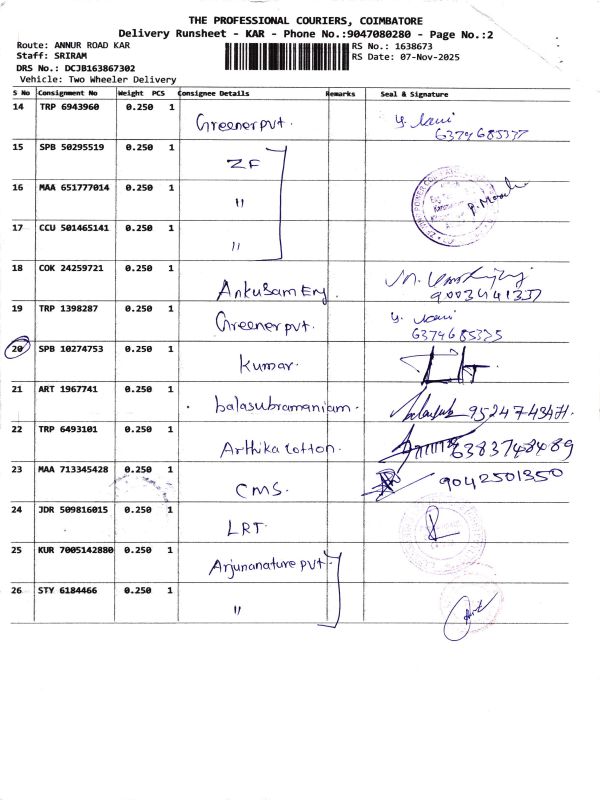 THE PROFESSIONAL COURIERS, COIMBATORE
Delivery Runsheet - KAR - Phone No.:9047080280 - Page No.:2
Route: ANNUR ROAD KAR RS No.: 1638673
Staff: SRIRAM RS Date: 07-Nov-2025
DRS No.: DCJB163867302
Vehicle: Two Wheeler Delivery
S No Consignment No Weight PCS Consignee Details Remarks Seal & Signature
14 TRP 6943960 0.250 1 Greener pvt.
15 SPB 50295519 0.250 1 ZF
16 MAA 651777014 0.250 1 "
17 CCU 501465141 0.250 1 "
18 COK 24259721 0.250 1 Ankusam Eng.
19 TRP 1398287 0.250 1 Greener pvt. 6374685335
20 SPB 10274753 0.250 1 Kumar.
21 ART 1967741 0.250 1 balasubramaniam. 9524743471.
22 TRP 6493101 0.250 1 Arthika cotton. 6383748489
23 MAA 713345428 0.250 1 CMS. 9042501350
24 JDR 509816015 0.250 1 LRT.
25 KUR 7005142880 0.250 1 Arjunanature pvt
26 STY 6184466 0.250 1 "